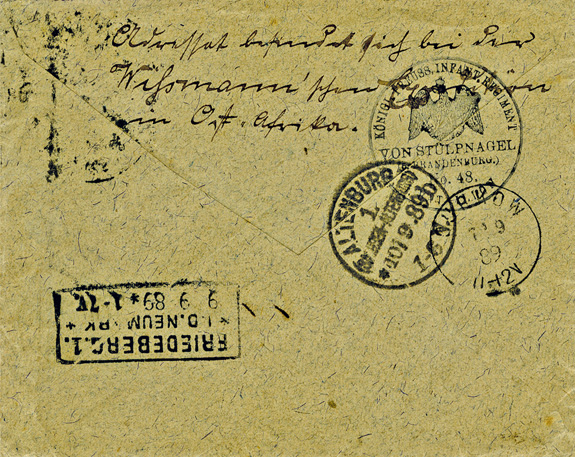 Adressat befindet sich bei der
Wißmann'schen Expedition
in Ost-Afrika.
KÖNIGL. PREUSS. INFANT. REGIMENT
VON STÜLPNAGEL
(BRANDENBURG.)
No. 48.
ALTENBURG
1.
10 / 9. 89
7-8 N.
9
89
11-12V
FRIEDEBERG. 1.
* I.D.NEUMARK *
9 9 89 * 1-7V.